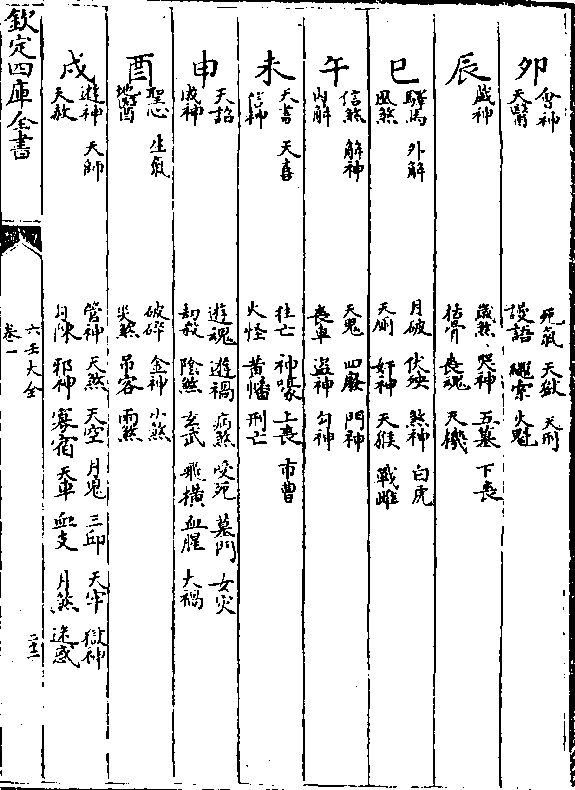 卯 會神
天醫
死氣 天獄 天刑
謾語 繩索 火鬼
辰 歲神
歲煞 哭神 五墓 下喪
枯骨 喪魂 天機
巳 驛馬 外解
風煞
月破 伏殃 煞神 白虎
天厠 奸神 天猴 戰雌
午 信煞 解神
內解
天鬼 四廢 門神
喪車 盜神 勾神
未 天書 天喜
信神
往亡 神嚎 上喪 市曹
火怪 黄幡 刑亡
申 天詔
成神
遊魂 遊禍 病煞 咬死 墓門 女災
劫殺 陰煞 玄武 飛横 血腥 大禍
酉 聖心 生氣
地醫
破碎 金神 小煞
災煞 吊客 雨煞
戌 遊神 天師
天赦
管神 天煞 天空 月鬼 三邱 天牢 獄神
勾陳 邪神 寡宿 天車 血支 月煞 迷惑
欽定四庫全書
六壬大全
卷一
二十二